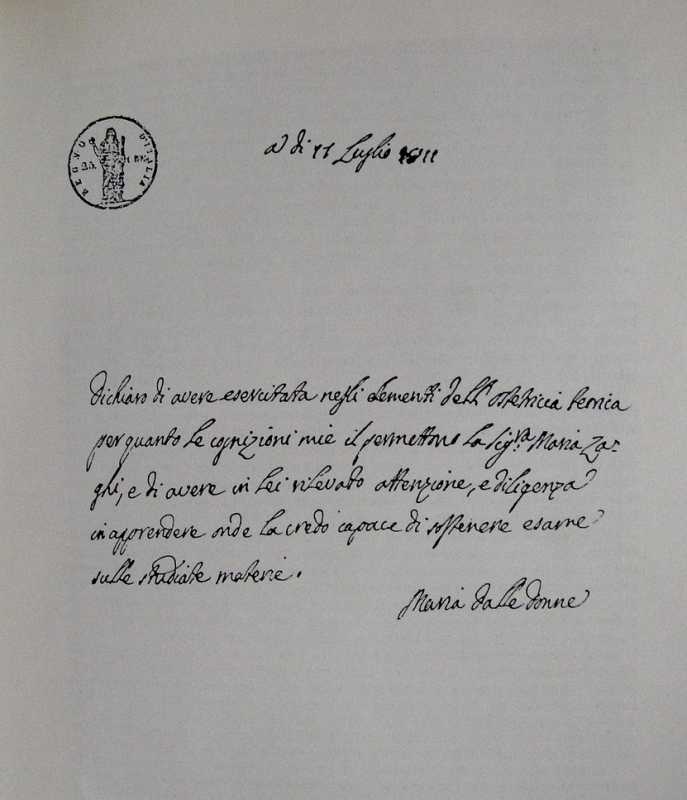 REGNO D'ITALIA
A di 11 Luglio 1811
Dichiaro di avere esercitata negli elementi dell' ostetricia teorica
per quanto le cognizioni mie il permettono la Sig.ra Maria Za=
ghi, e di avere in lei rilevato attenzione, e diligenza
in apprendere onde la credo capace di sostenere esame
sulle studiate materie.
Maria dalle donne